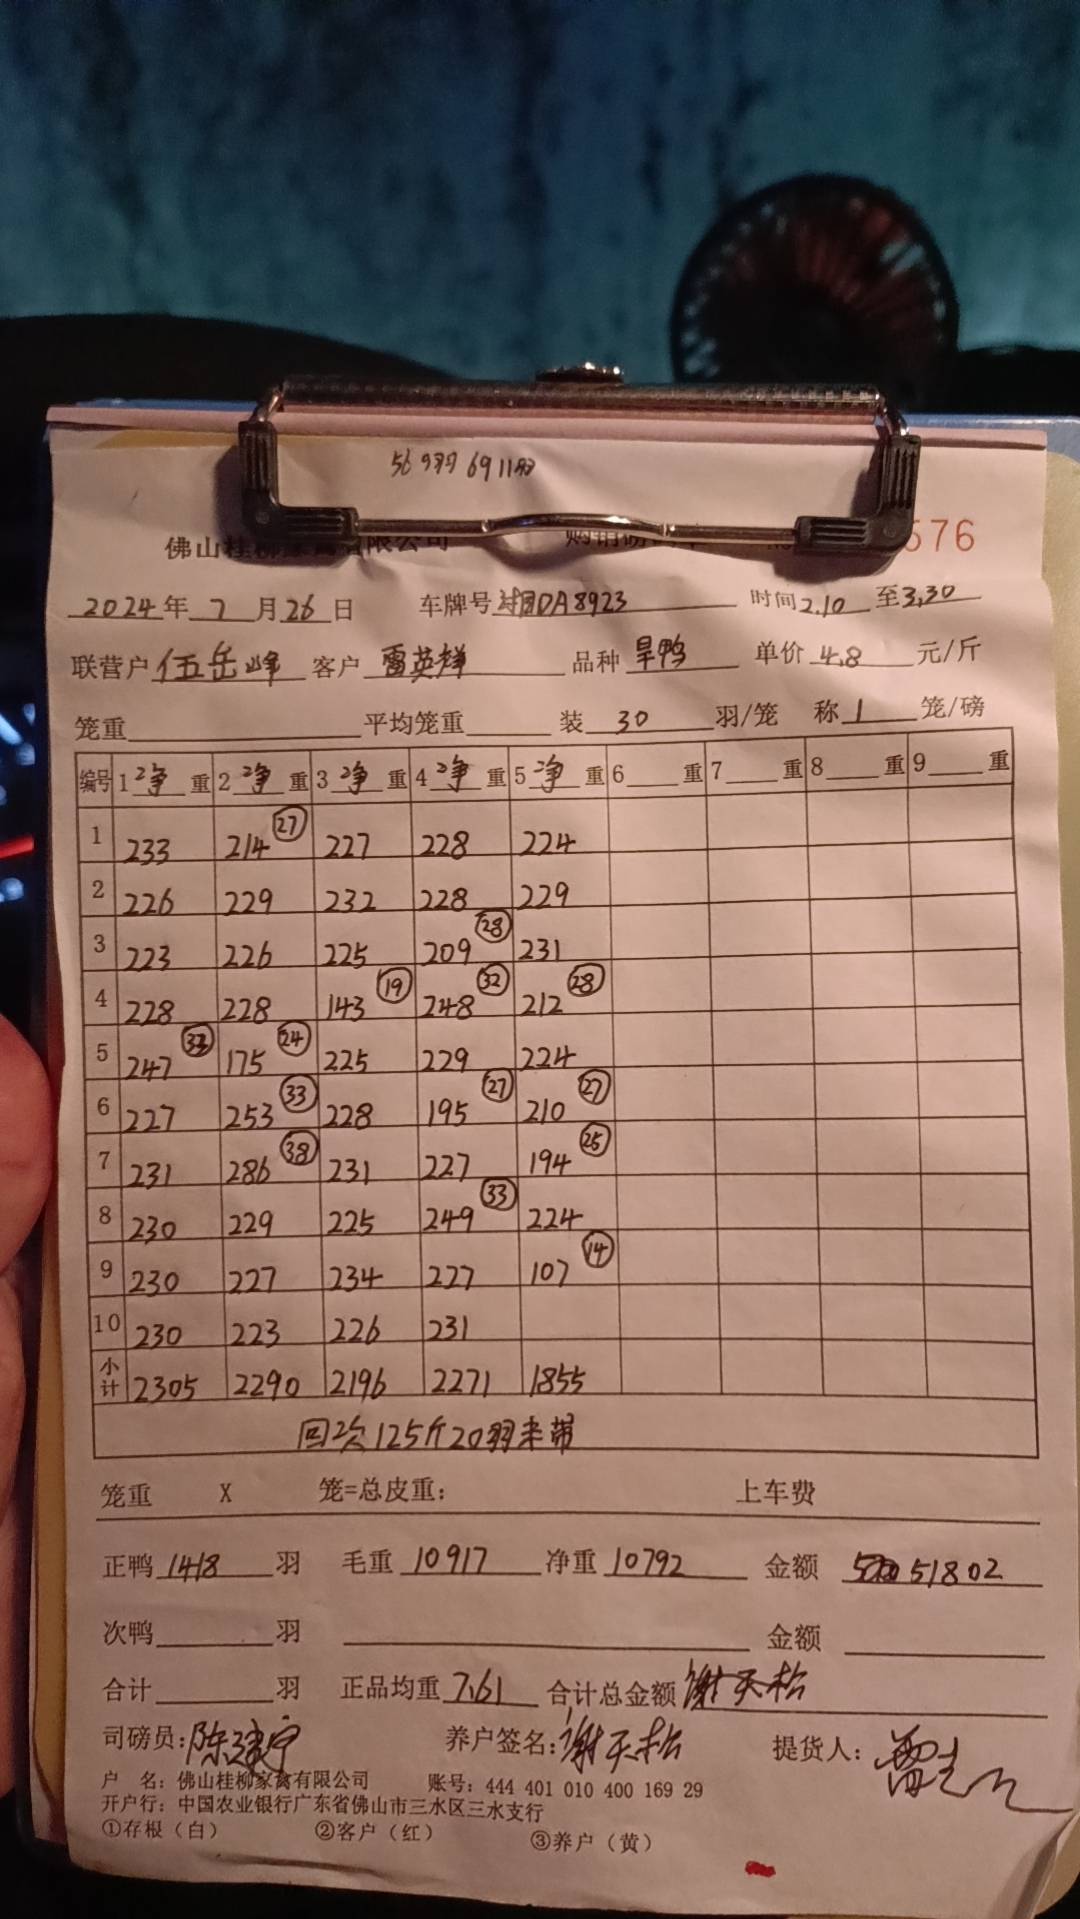 佛山桂柳家禽有限公司 576
2024年 7月26日 车牌号 DA8923 时间2.10至3.30
联营户 伍岳峰 客户 雷英祥 品种 旱鸭 单价 4.8 元/斤
笼重 平均笼重 装 30 羽/笼 称 1 笼/磅
编号 1 净 重 2 净 重 3 净 重 4 净 重 5 净 重 6 重 7 重 8 重 9 重
1 233 214 27 227 228 224
2 226 229 232 228 229
3 223 226 225 209 28 231
4 228 228 143 19 248 32 212 28
5 247 175 24 225 229 224
6 227 253 33 228 195 27 210 27
7 231 286 38 231 227 194 25
8 230 229 225 249 33 224
9 230 227 234 227 107 14
10 230 223 226 231
小计 2305 2290 2196 2271 1855
回次125斤20羽未带
笼重 X 笼=总皮重: 上车费
正鸭 1418 羽 毛重 10917 净重 10792 金额 51802
次鸭 羽 金额
合计 羽 正品均重 7.61 合计总金额 谢天松
司磅员: 陈建宁 养户签名: 谢天松 提货人:
户 名: 佛山桂柳家禽有限公司 账号: 444 401 010 400 169 29
开户行: 中国农业银行广东省佛山市三水区三水支行
①存根（白） ②客户（红） ③养户（黄）